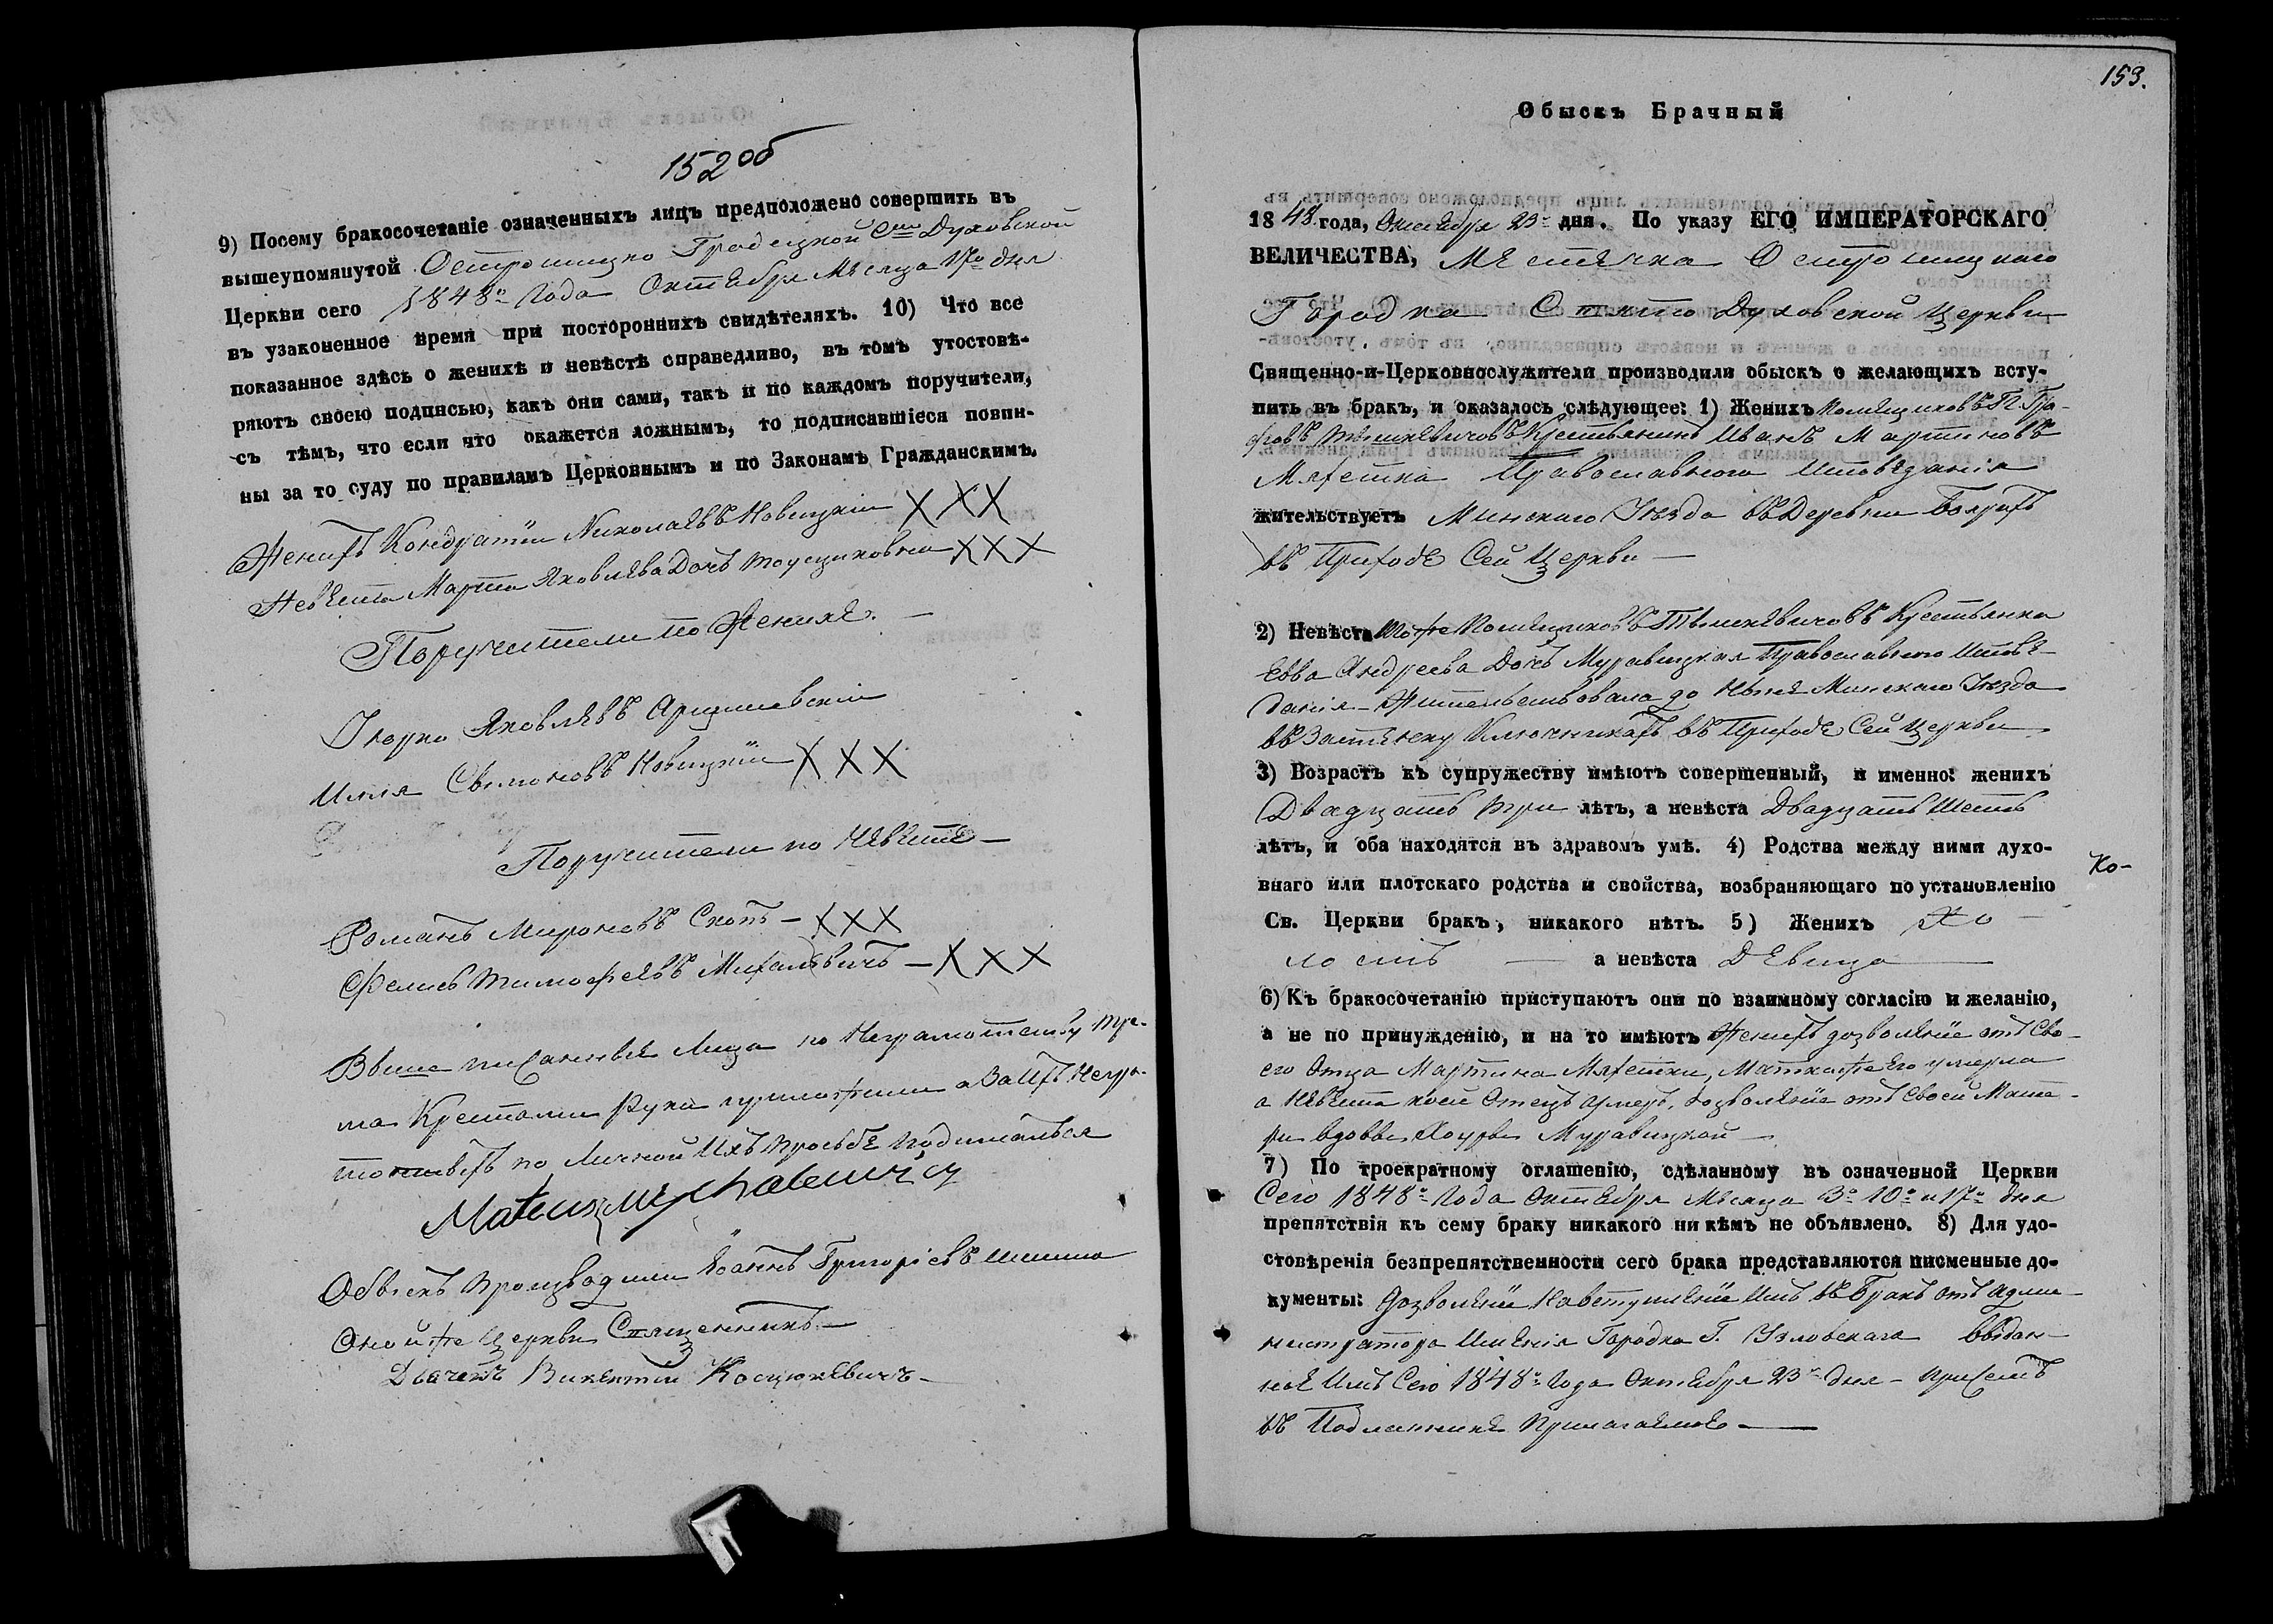 152 об
9) Посему бракосочетаніе означенныхъ лицъ предположено совершить въ
вышеупомянутой Острошицко Градецкой Сто Духовской
Церкви сего 1848го Года Октября Мѣсяца 17го дня
въ узаконенное время при постороннихъ свидѣтеляхъ. 10) Что все
показанное здѣсь о женихѣ и невѣстѣ справедливо, въ томъ утостовѣ-
ряютъ своею подписью, какъ они сами, такъ и по каждомъ поручители,
съ тѣмъ, что если что окажется ложнымъ, то подписавшіеся повин-
ны за то суду по правиламъ Церковнымъ и по Законамъ Гражданскимъ.
Женихъ Кондратій Николаевъ Новицкій XXX
Невѣста Марта Яковлева Дочь XXX
Поручители по Женихѣ. —
Яковлевъ
Илія Новицкій XXX
Поручители по Невѣстѣ —
Романъ Мироновъ Скопъ — XXX
Тимофеевъ Михалевичъ — XXX
Выше писанные Лица по Неграмотству тре-
мя Крестами Руки приложили а За Ихъ Негра-
мотныхъ по Личной Ихъ Просьбѣ Подписался
Mateusz Mychalewicz
Обыскъ Производили Іоаннъ Григоріевъ
Оной же Церкви Священникъ —
Дьячекъ Викентій Косцюкевичъ —
153.
Обыскъ Брачный
1848 года, Октября 23го дня. По указу ЕГО ИМПЕРАТОРСКАГО
ВЕЛИЧЕСТВА, Мѣстечка Острошицкаго
Городка Святто Духовской Церкви
Священно-и-Церковнослужители производили обыскъ о желающихъ всту-
пить въ бракъ, и оказалось слѣдующее: 1) Женихъ Помещиковъ Г. Гра-
фовъ Тышкевичовъ Крестьянинъ Иванъ Мартиновъ
Мяхетка Православного Исповеданія
жительствуетъ Минскаго Уезда въ Деревни Боярахъ
въ Приходе Сей Церкви —
2) Невѣста Тоже Помещиковъ Тышкевичовъ Крестьянка
Евва Андреева Дочь Муравицкая Православного Испове-
данія — Жительствовала до Ныне Минскаго Уезда
въ Застенку Ключникахъ въ Приходе Сей Церкви
3) Возрастъ къ супружеству имѣютъ совершенный, и именно: женихъ
Двадцать три лѣтъ, а невѣста Двадцать Шесть
лѣтъ, и оба находятся въ здравомъ умѣ. 4) Родства между ними духо-
внаго или плотскаго родства и свойства, возбраняющаго по установленію
Ко-
Св. Церкви бракъ, никакого нѣтъ. 5) Женихъ Хо —
лостъ — а невѣста Девица —
6) Къ бракосочетанію приступаютъ они по взаимному согласію и желанію,
а не по принужденію, и на то имѣютъ Женихъ дозволеніе отъ Сво-
его Отца Мартина Мяхетки, Матка же Его умерла
а Невѣста коей Отецъ умеръ, дозволеніе отъ Своей Мате-
ри Вдовы Муравицкой —
7) По троекратному оглашенію, сдѣланному въ означенной Церкви
Сего 1848го Года Октября Мѣсяца 3го 10го и 17го дня
препятствія къ сему браку никакого ни кѣмъ не объявлено. 8) Для удо-
стовѣренія безпрепятственности сего брака представляются писменные до-
кументы: Дозволеніе Навступленіе Имъ въ Бракъ отъ Адми-
нистратора Именія Городка Г. Узловскаго выдан-
ное Имъ Сего 1848го Года Октября 23го дня — при Семъ
въ Подлиннике Прилагаемое —